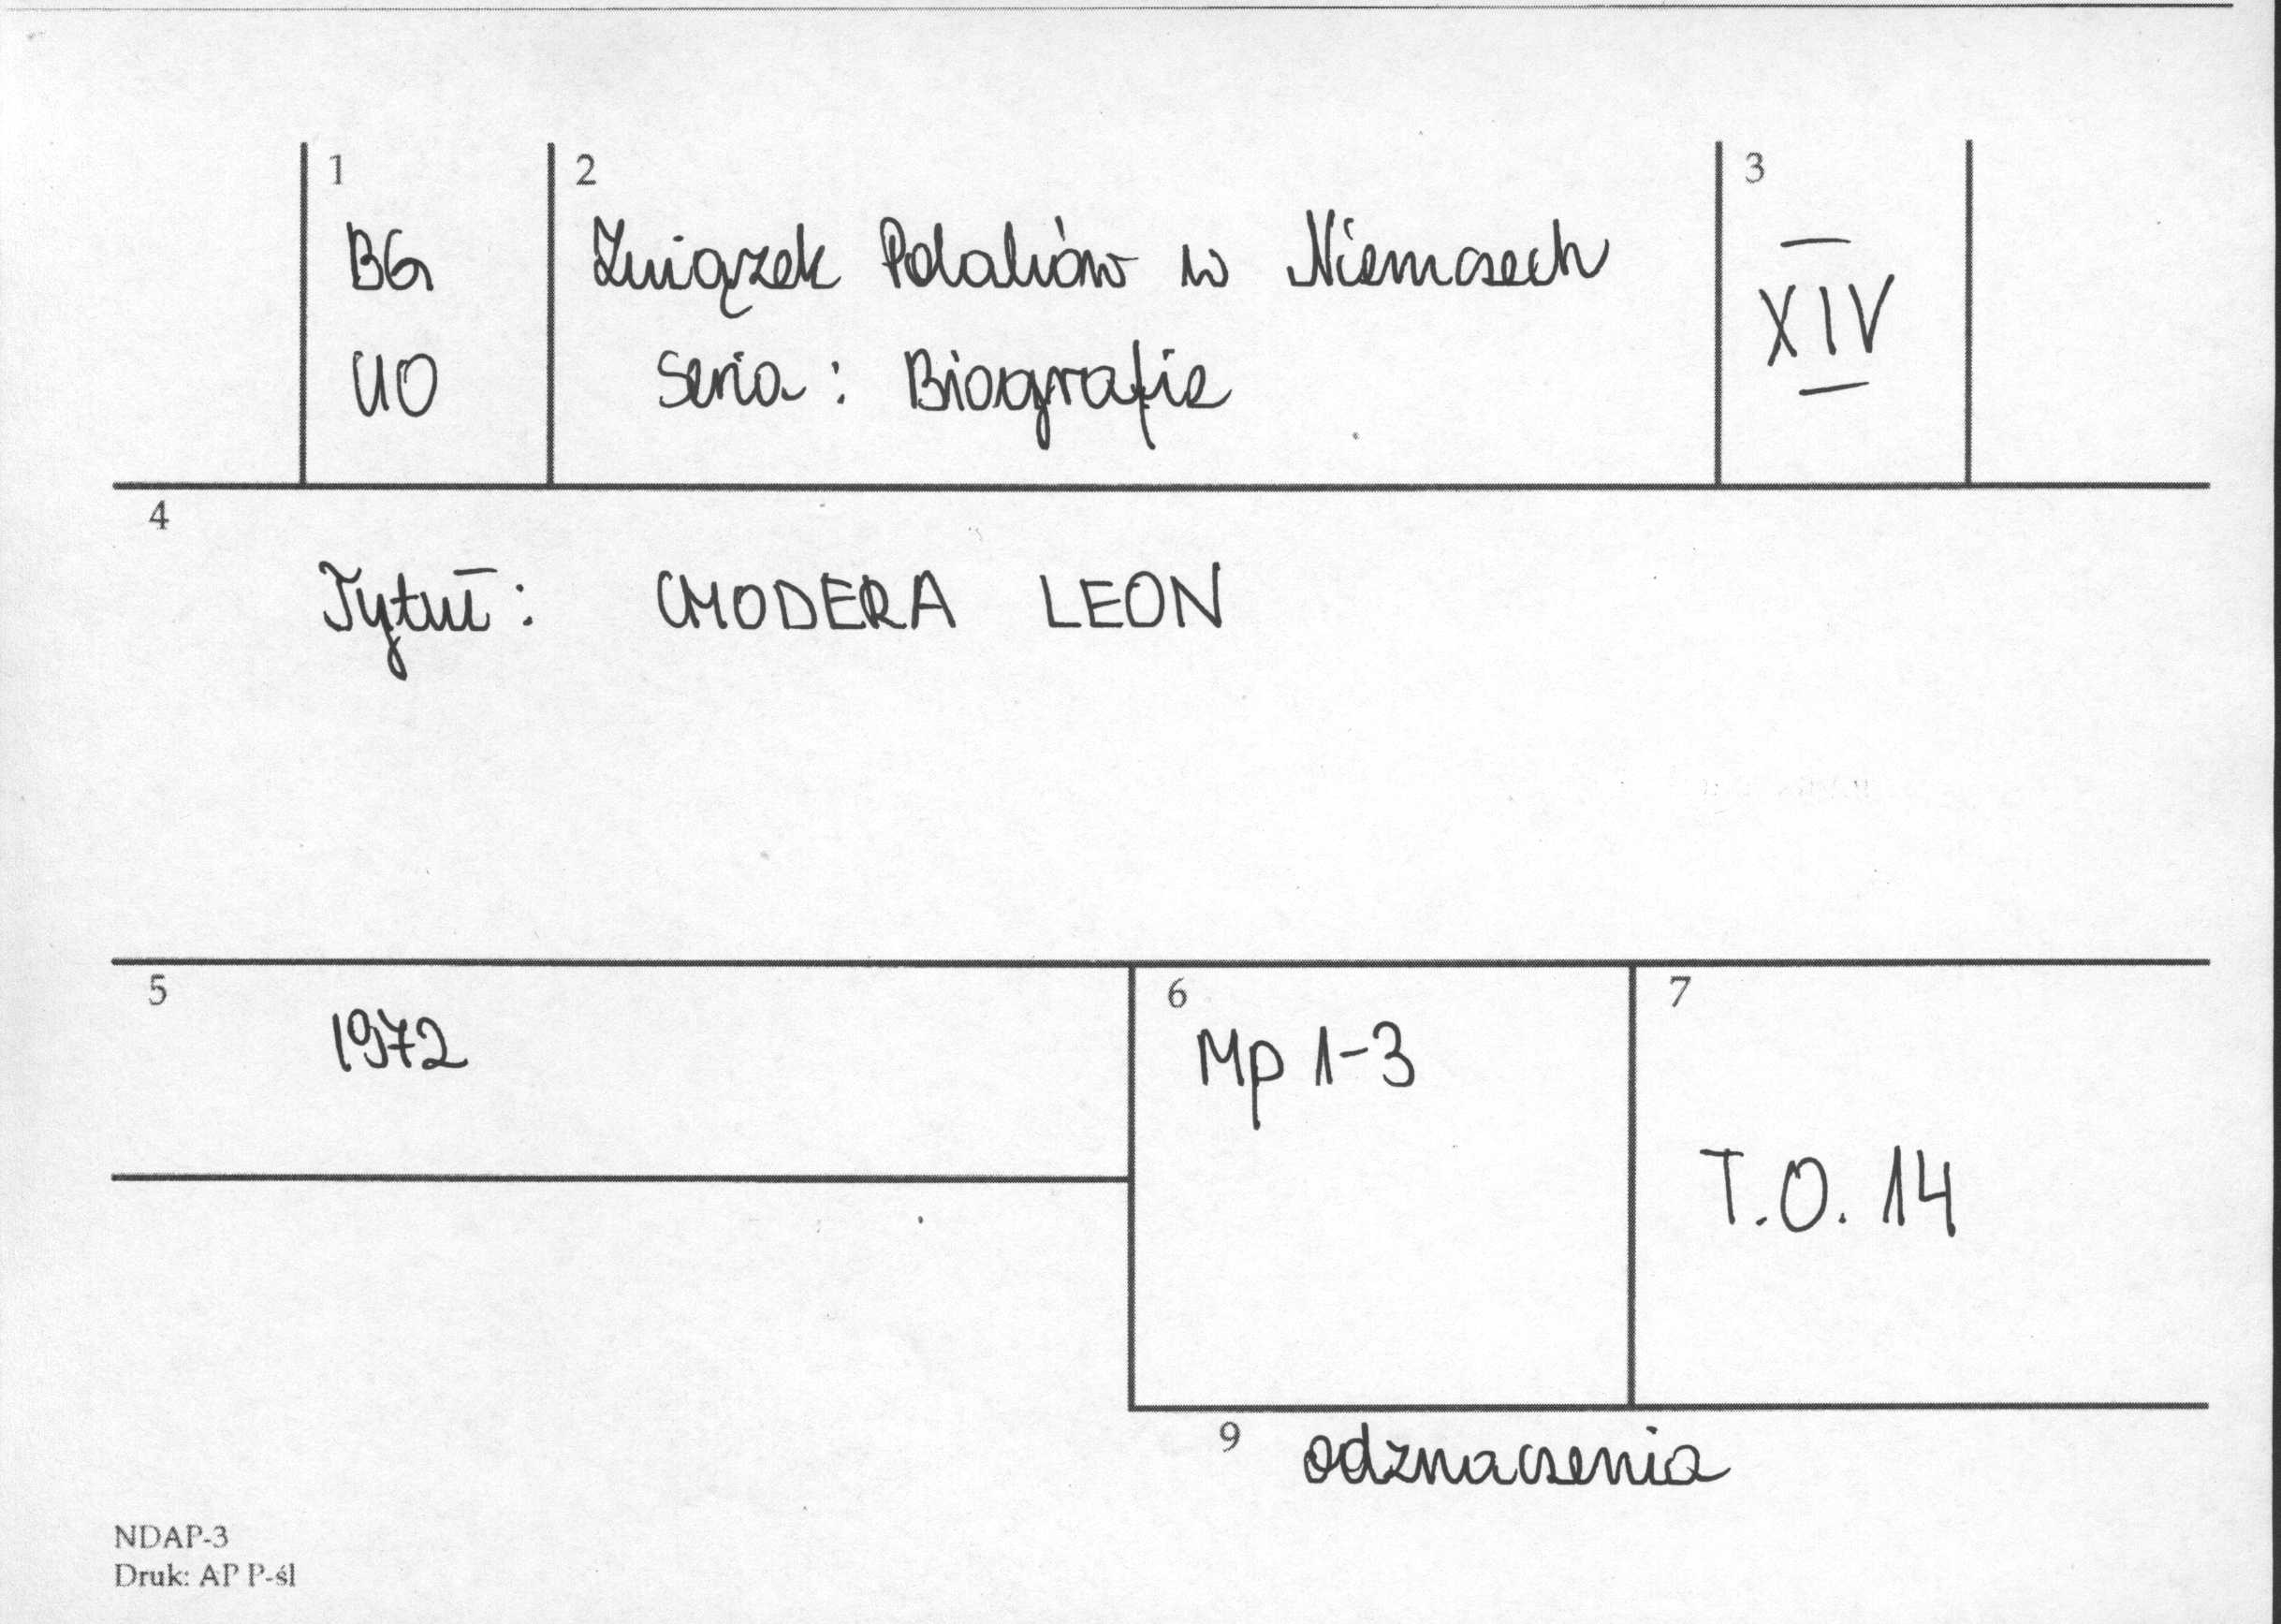 1
BG
UO
2
Związek Polaków w Niemczech
Seria: Biografie
3
XIV
4
Tytuł: CHODERA LEON
5
1972
6
Mp 1-3
7
T.O. 14
9 odznaczenia
NDAP-3
Druk: AP P-śl